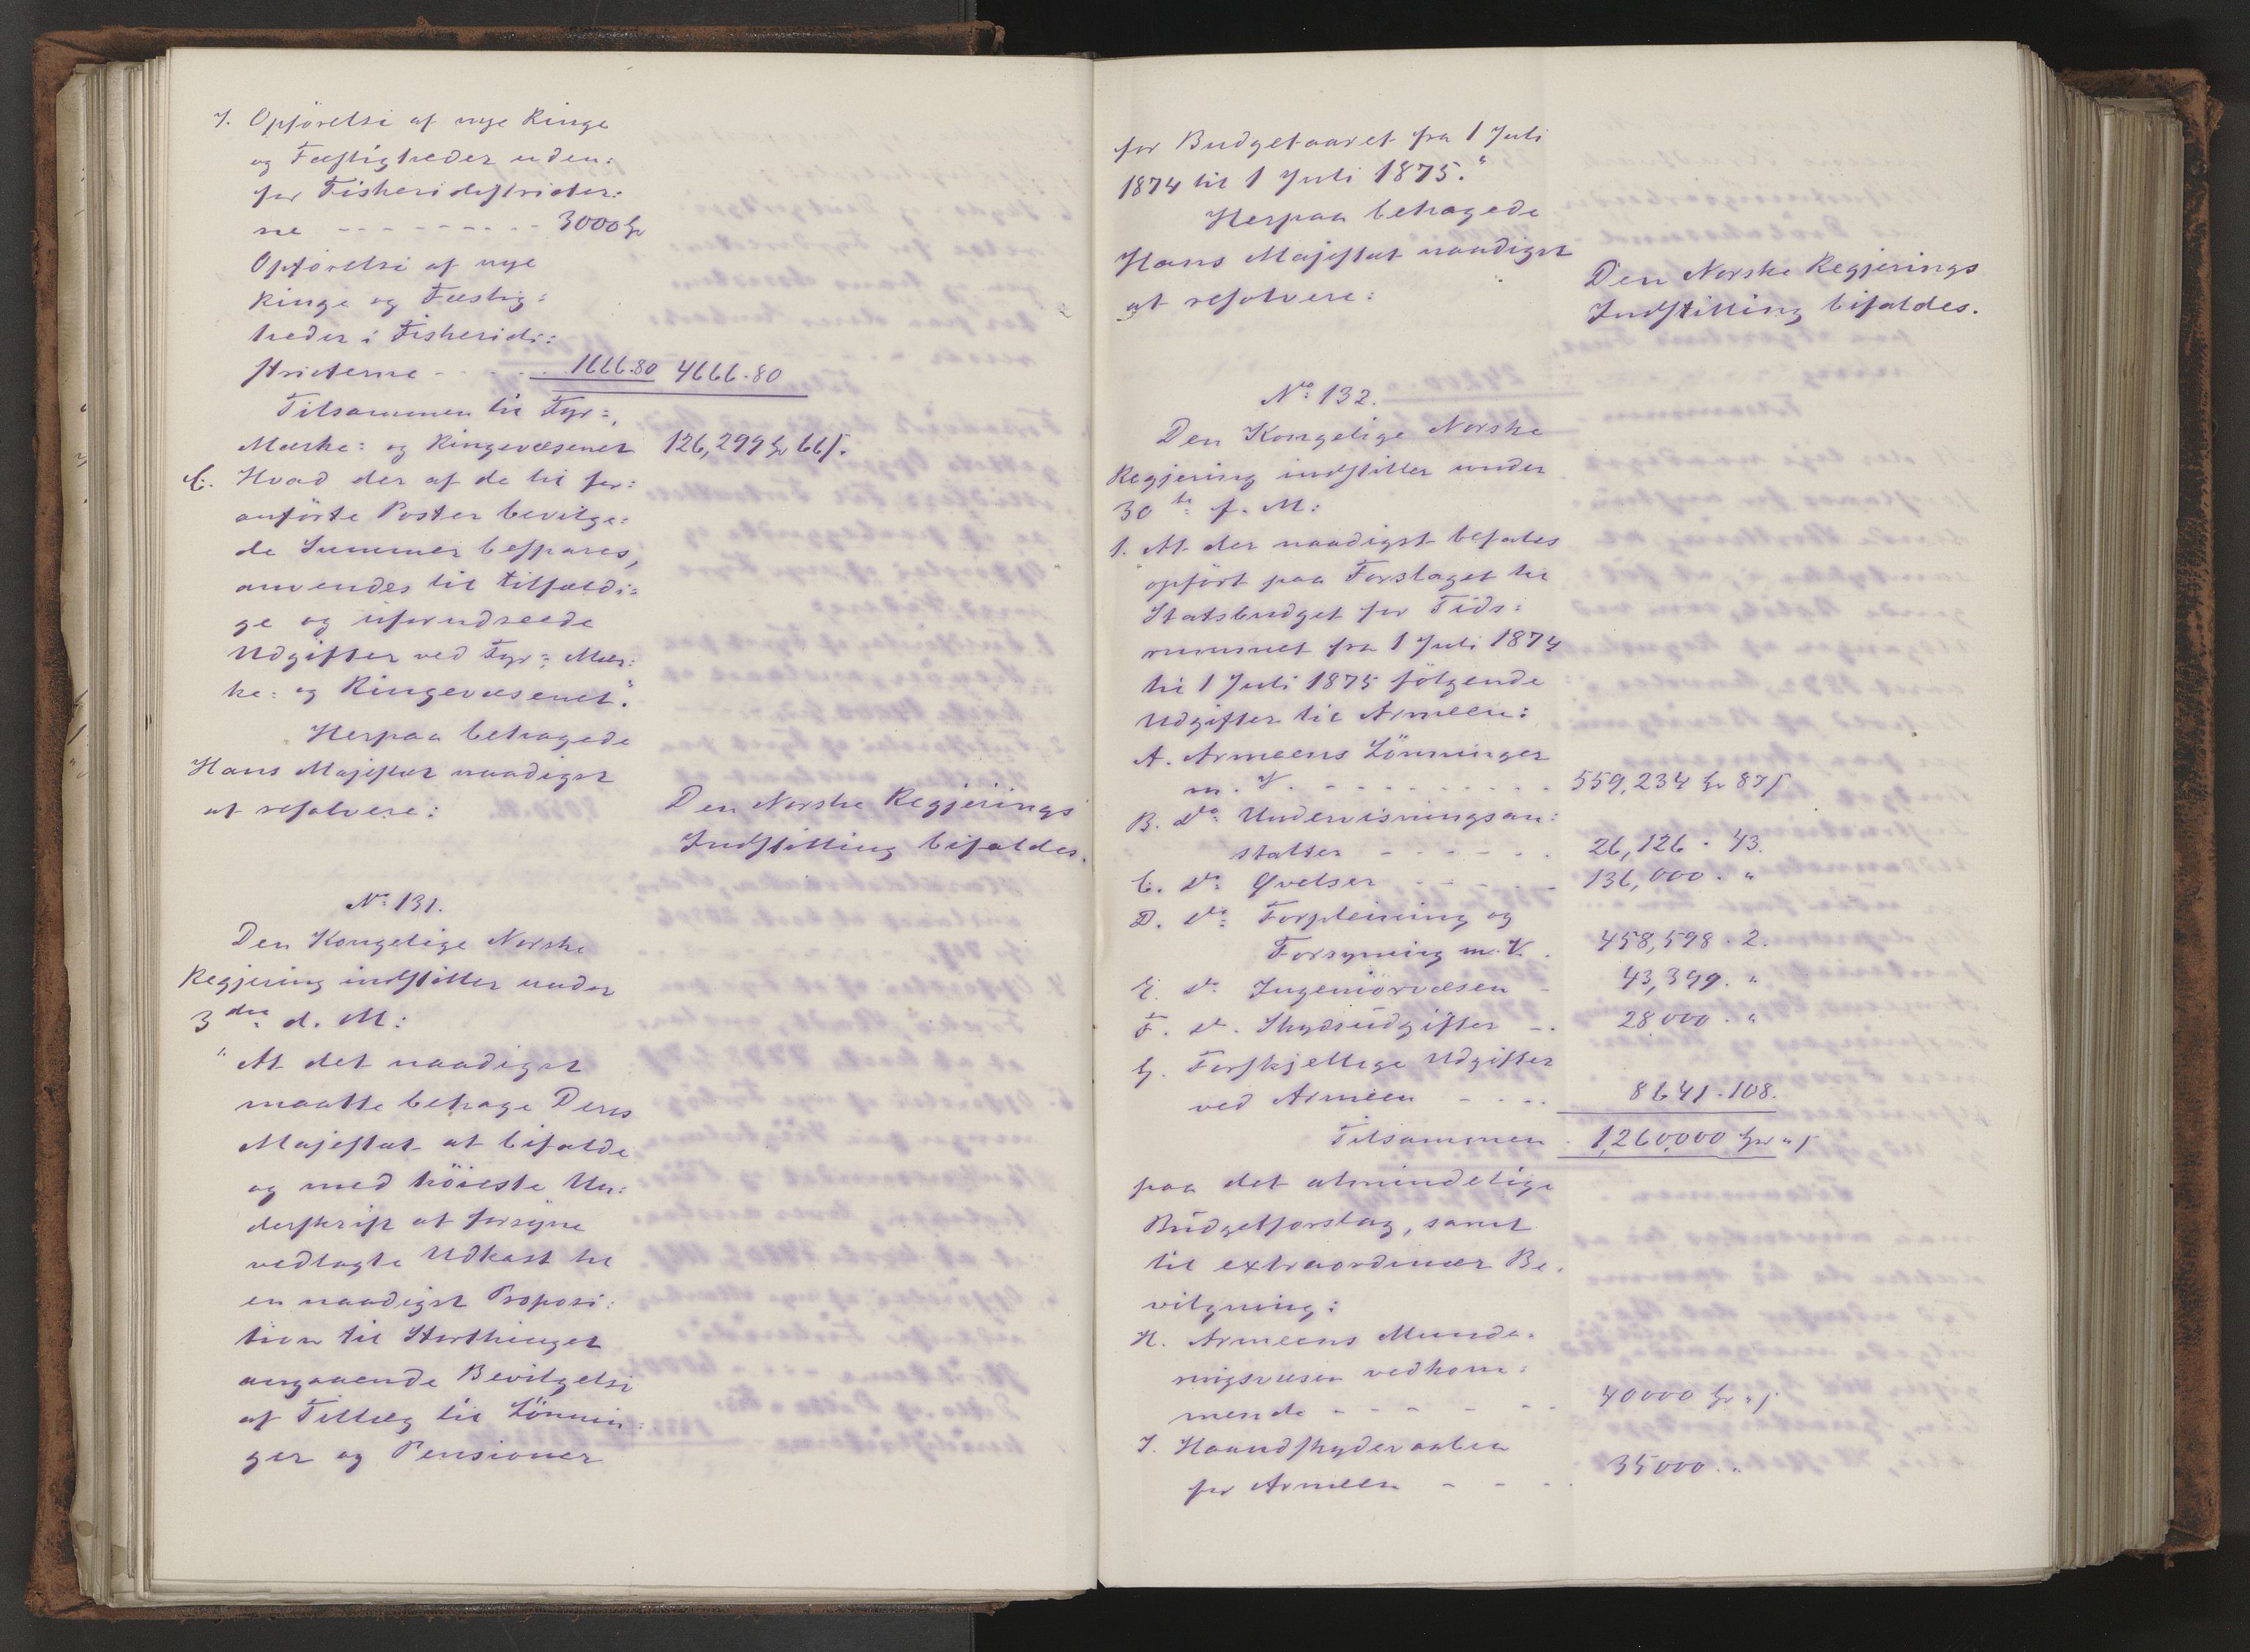 7. Opførelse af nye Ringe
og Fæstigheder uden=
for Fiskeridistricter=
ne - - - - - - - - - 3000 Sp
Opførelse af nye
Ringe og Fæstig=
heder i Fiskeridi=
stricterne - - - - - 1666.80 4666.80
Tilsammen til Fyr=,
Mærke= og Ringevæsenet 126,299 Sp 66 s.
C. Hvad der af de til for=
anførte Poster bevilge=
de Summer bespares,
anvendes til tilfældi=
ge og uforudseede
Udgifter ved Fyr= Mær=
ke= og Ringevæsenet."
Herpaa behagede
Hans Majestæt naadigst
at resolvere:
Den Norske Regjerings
Indstilling bifaldes.
No 131.
Den Kongelige Norske
Regjering indstiller under
3die d. M:
"At det naadigst
maatte behage Deres
Majestæt at bifalde
og med høieste Un=
derskrift at forsyne
vedlagte Udkast til
en naadigst Proposi=
tion til Storthinget
angaaende Bevilgelse
af Tillæg til Lønnin=
ger og Pensioner
for Budgetaaret fra 1 Juli
1874 til 1 Juli 1875."
Herpaa behagede
Hans Majestæt naadigst
at resolvere:
Den Norske Regjerings
Indstilling bifaldes.
No 132.
Den Kongelige Norske
Regjering indstiller under
30te f. M:
1. "At der naadigst befales
opført paa Forslaget til
Statsbudget for Tids=
rummet fra 1 Juli 1874
til 1 Juli 1875 følgende
Udgifter til Armeen:
A. Armeens Lønninger
m. V. - - - - - - - - 559,234 Sp 87 s
B. Do Undervisningsan=
stalter - - - - - - 26,126 . 43.
C. Do Øvelser - - - - - 136,000 . "
D. Do Forpleining og
Forsyning m. V. . 458,598 . 2.
E. Do Ingeniørvæsen - 43,399 . "
F. Do. Skydsudgifter - . 28,000 . "
G. Forskjellige Udgifter
ved Armeen - - - . 8641 . 108.
Tilsammen . 1,260,000 Sp " s
paa det almindelige
Budgetforslag, samt
til extraordinær Be=
vilgning:
H. Armeens Munde=
ringsvæsen vedkom=
mende - - - - - - 40000 Sp " s
I. Haandskydevaaben
for Armeen - - - . 35000 . "